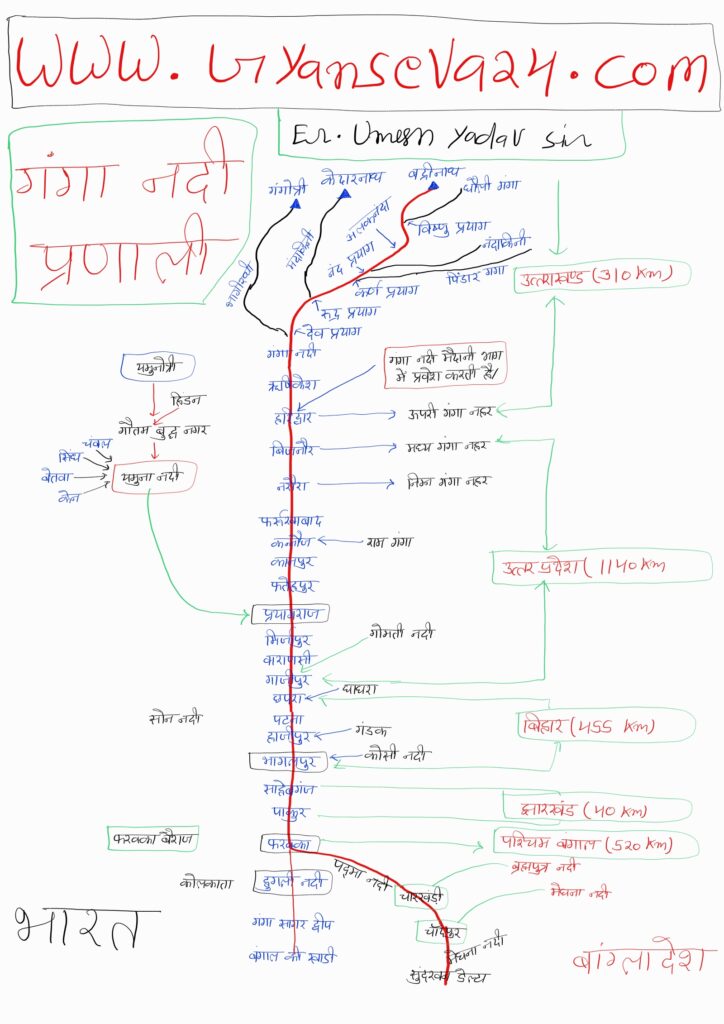 www.Gyanseva24.com
Er. Umesh Yadav sir
गंगा नदी
प्रणाली
गंगोत्री
केदारनाथ
बद्रीनाथ
धौली गंगा
अलकनंदा
विष्णु प्रयाग
मंदाकिनी
नंद प्रयाग
नंदाकिनी
पिंडार गंगा
उत्तराखण्ड (310 Km)
भागीरथी
कर्ण प्रयाग
रुद्र प्रयाग
देव प्रयाग
गंगा नदी
गंगा नदी मैदानी भाग
में प्रवेश करती है/
यमुनोत्री
ऋषिकेश
हिंडन
हरिद्वार
ऊपरी गंगा नहर
गौतम बुद्ध नगर
चंबल
सिंध
बेतवा
केन
यमुना नदी
बिजनौर
मध्य गंगा नहर
नरौरा
निम्न गंगा नहर
फर्रुखाबाद
कन्नौज
राम गंगा
कानपुर
उत्तर प्रदेश (1140 Km
फतेहपुर
प्रयागराज
मिर्जापुर
गोमती नदी
वाराणसी
गाजीपुर
छपरा
घाघरा
सोन नदी
पटना
हाजीपुर
गंडक
बिहार (455 Km)
भागलपुर
कोसी नदी
साहेबगंज
पाकुर
झारखंड (40 Km)
फरक्का बैराज
फरक्का
पश्चिम बंगाल (520 Km)
पद्मा नदी
ब्रह्मपुत्र नदी
कोलकाता
हुगली नदी
चारखंडी
मेघना नदी
गंगा सागर द्वीप
चाँदपुर
भारत
मेघना नदी
बंगाल की खाडी
सुंदरवन डेल्टा
बांग्लादेश